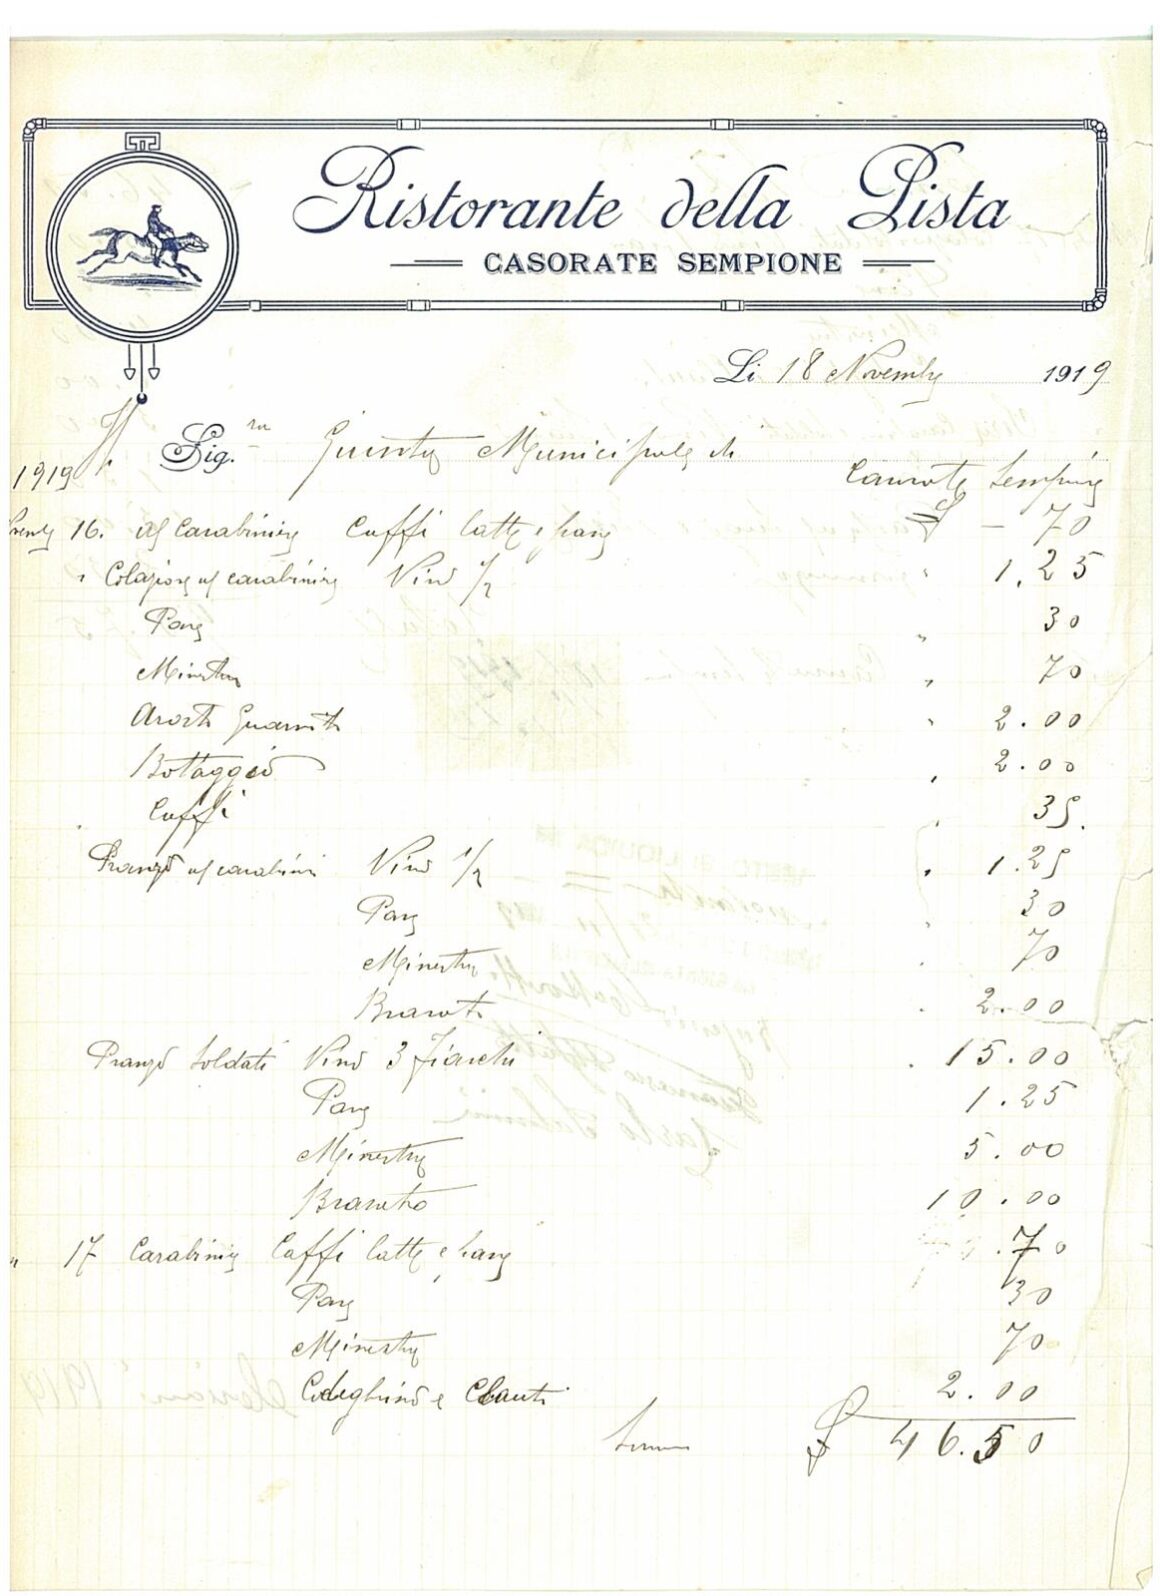 Ristorante della Pista
CASORATE SEMPIONE
Li 18 Novembre 1919
Sig.ra Giunta Municipale di
1919 Casorate Sempione
16. ai Carabinieri Caffè latte e pane £ - 70
" Colazione ai carabinieri Vino 1/2 " 1.25
Pane " 30
Minestra " 70
Arosto Guarnito " 2.00
Bottaggio " 2.00
Caffè " 35.
Pranzo ai carabinieri Vino 1/2 " 1.25
Pane " 30
Minestra " 70
Brasato " 2.00
Pranzo Soldati Vino 3 Fiaschi " 15.00
Pane 1.25
Minestra 5.00
Brasato 10.00
" 17 Carabinieri Caffè latte e pane .70
Pane 30
Minestra 70
Codeghino e 2.00
Somma £ 46.50